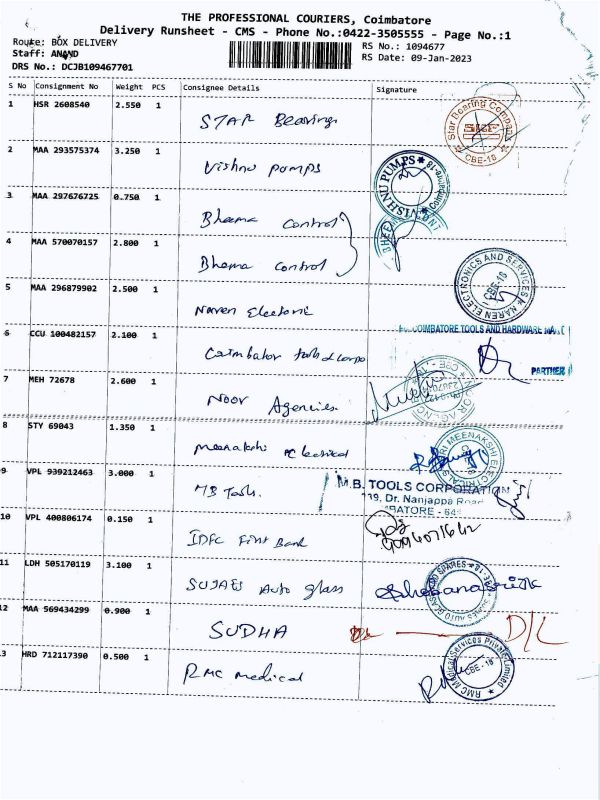 THE PROFESSIONAL COURIERS, Coimbatore
Delivery Runsheet - CMS - Phone No.:0422-3505555 - Page No.:1
Route: BOX DELIVERY
RS No.: 1094677
Staff: ANAND
RS Date: 09-Jan-2023
DRS No.: DCJB109467701
S No Consignment No Weight PCS Consignee Details Signature
1 HSR 2608540 2.550 1 STAR Bearings
Star Bearing Company
CBE-18
2 MAA 293575374 3.250 1 Vishnu pumps
VISHNU PUMPS
3 MAA 297676725 0.750 1 Bheema Control
BHEE
4 MAA 570070157 2.800 1 Bhema Control
5 MAA 296879902 2.500 1 Naren Electonic
NAREN ELECTRONICS AND SERVICES
CBE-18
6 CCU 100482157 2.100 1 Coimbator
COIMBATORE TOOLS AND HARDWARE MART
PARTNER
7 MEH 72678 2.600 1 Noor Agencies
8 STY 69043 1.350 1 meenakshi
SRI MEENAKSHI ELECTRICALS
9 VPL 939212463 3.000 1 MB Tools.
M.B. TOOLS CORPORATION
Dr. Nanjappa Road
10 VPL 400806174 0.150 1 IDFC First Bank
11 LDH 505170119 3.100 1 SUJAES Auto Glass
12 MAA 569434299 0.900 1 SUDHA D/L
13 HRD 712117390 0.500 1 RMC medical
RMC Medical Services Private Limited
CBE-18